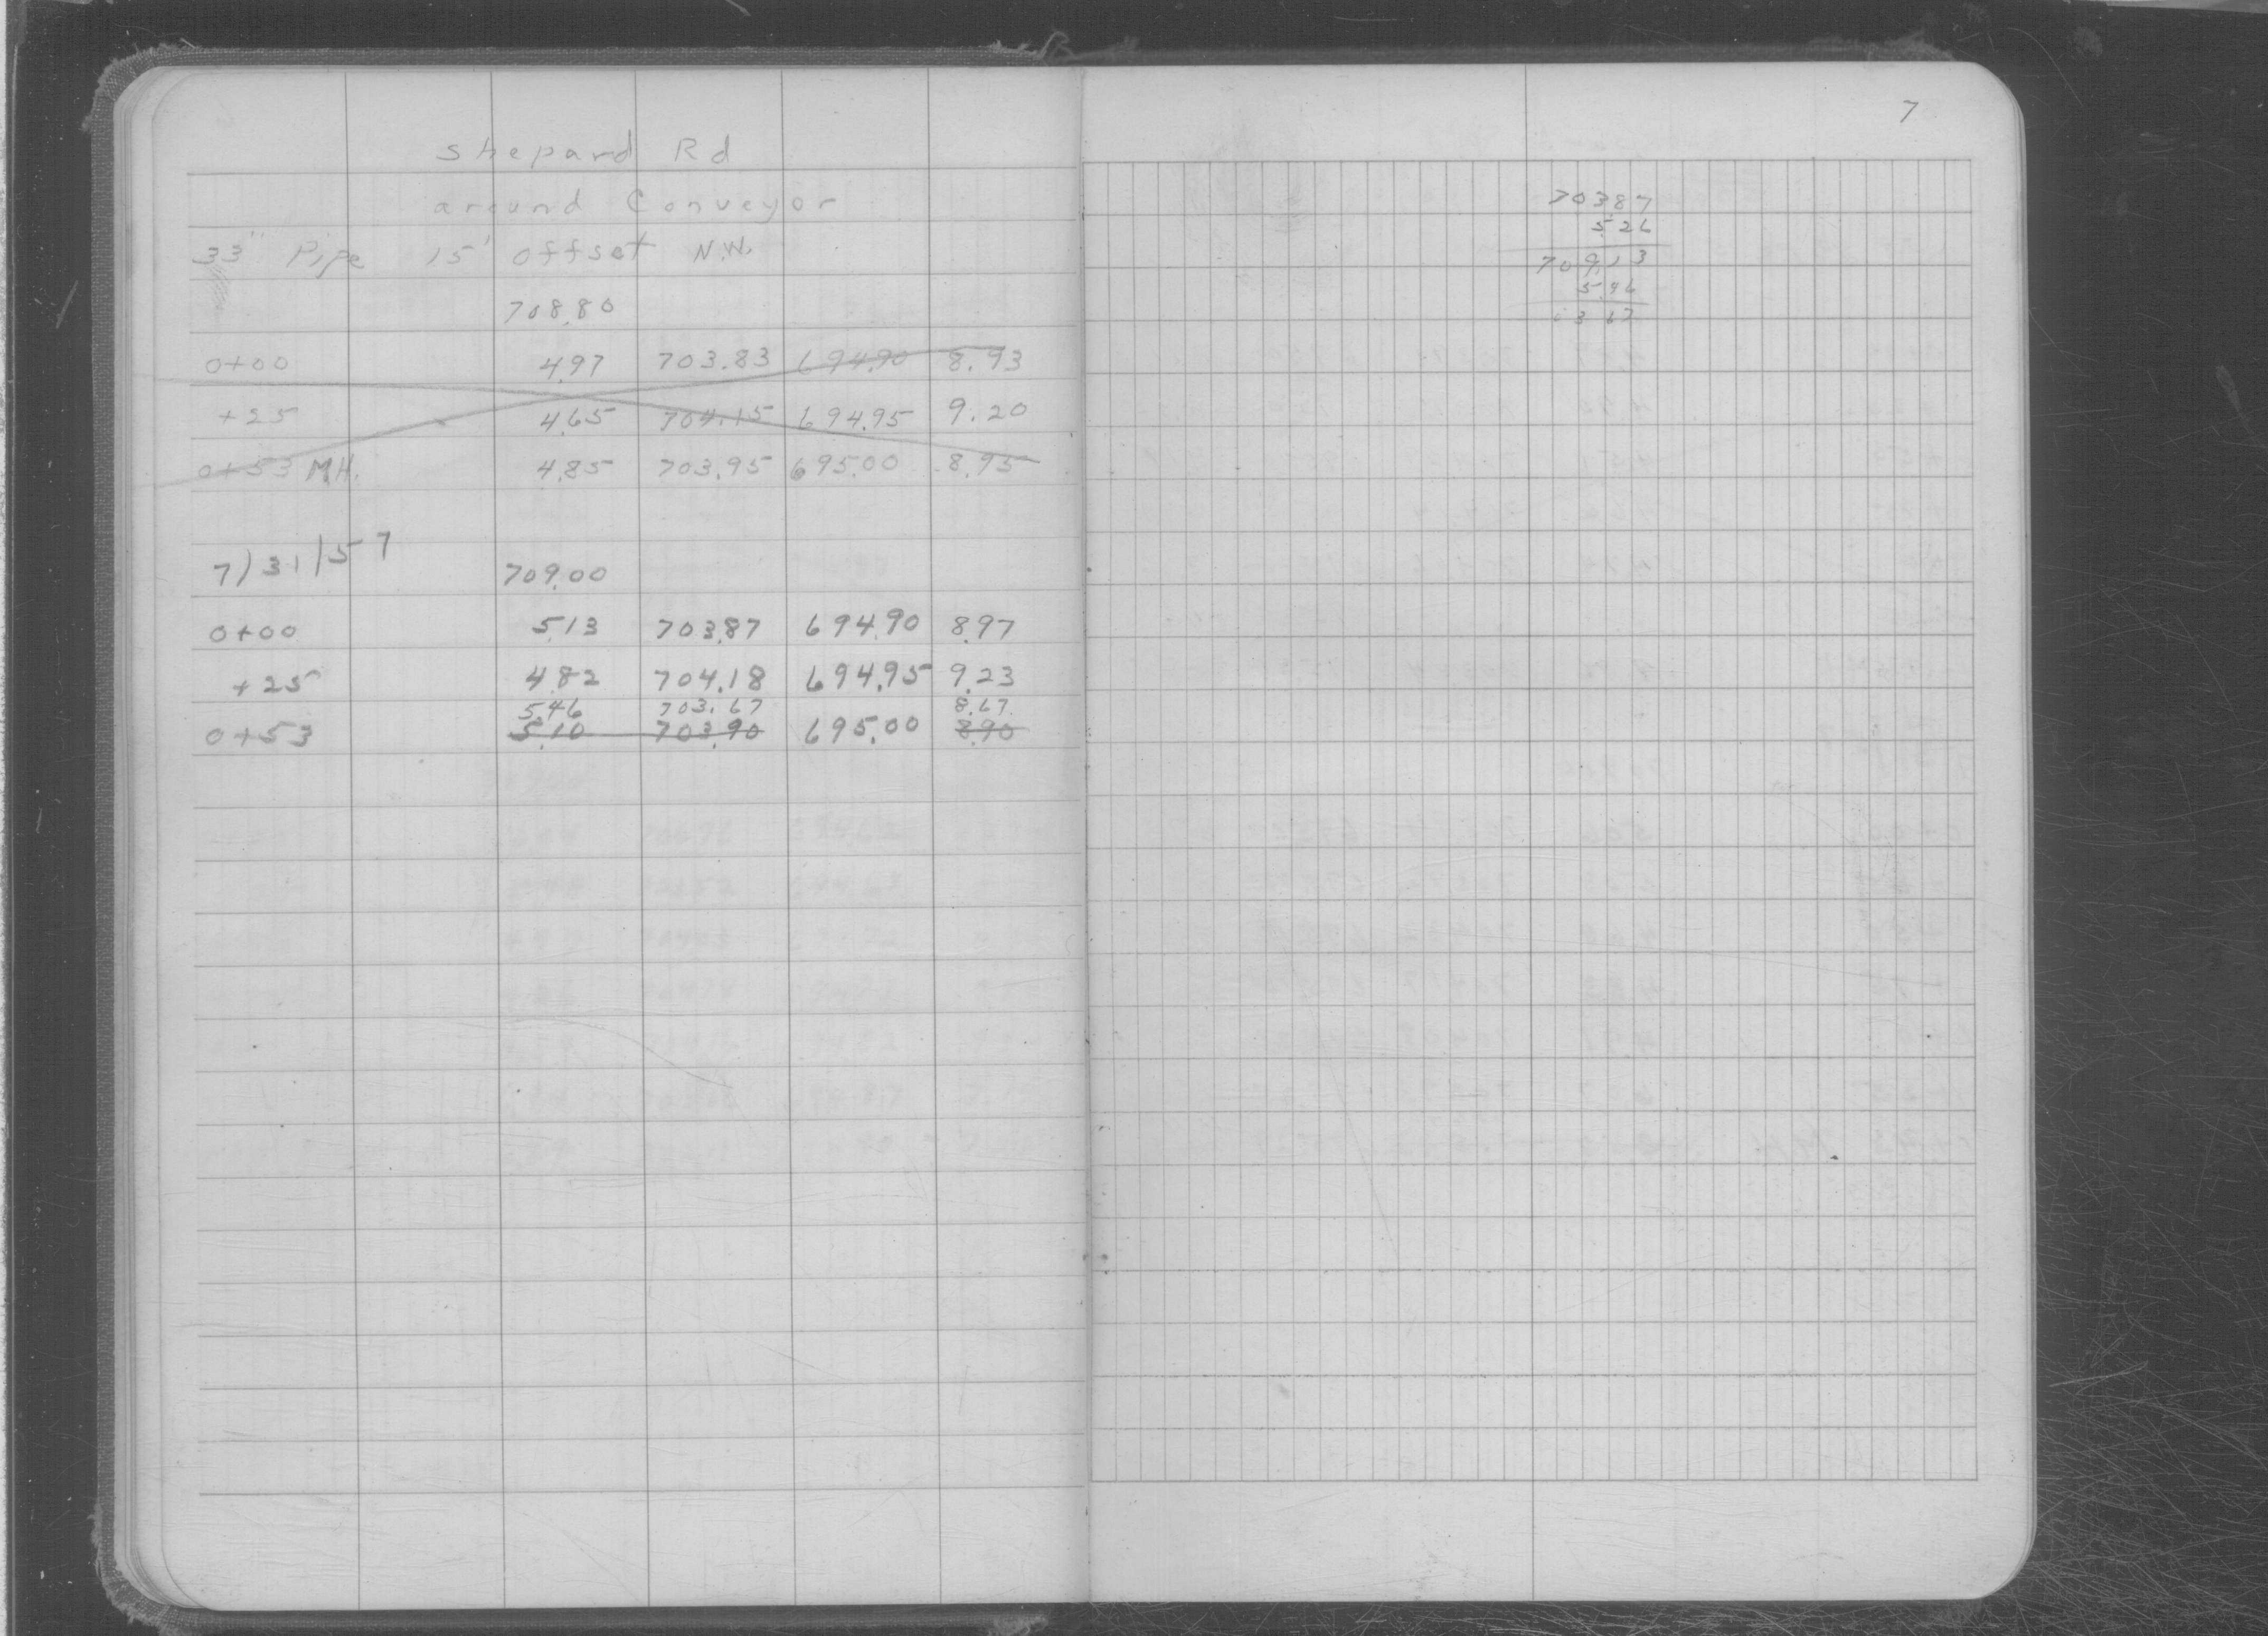 Shepard Rd
around Conveyor
33" Pipe 15' offset N.W.
708.80
0+00 4.97 703.83 694.90 8.93
+25 4.65 704.15 694.95 9.20
0+53 M.H. 4.85 703.95 695.00 8.95
7/31/57 709.00
0+00 5.13 703.87 694.90 8.97
+25 4.82 704.18 694.95 9.23
5.46 703.67 8.67
0+53 5.10 703.90 695.00 8.90
7
703.87
5.26
709.13
5.46
03.67